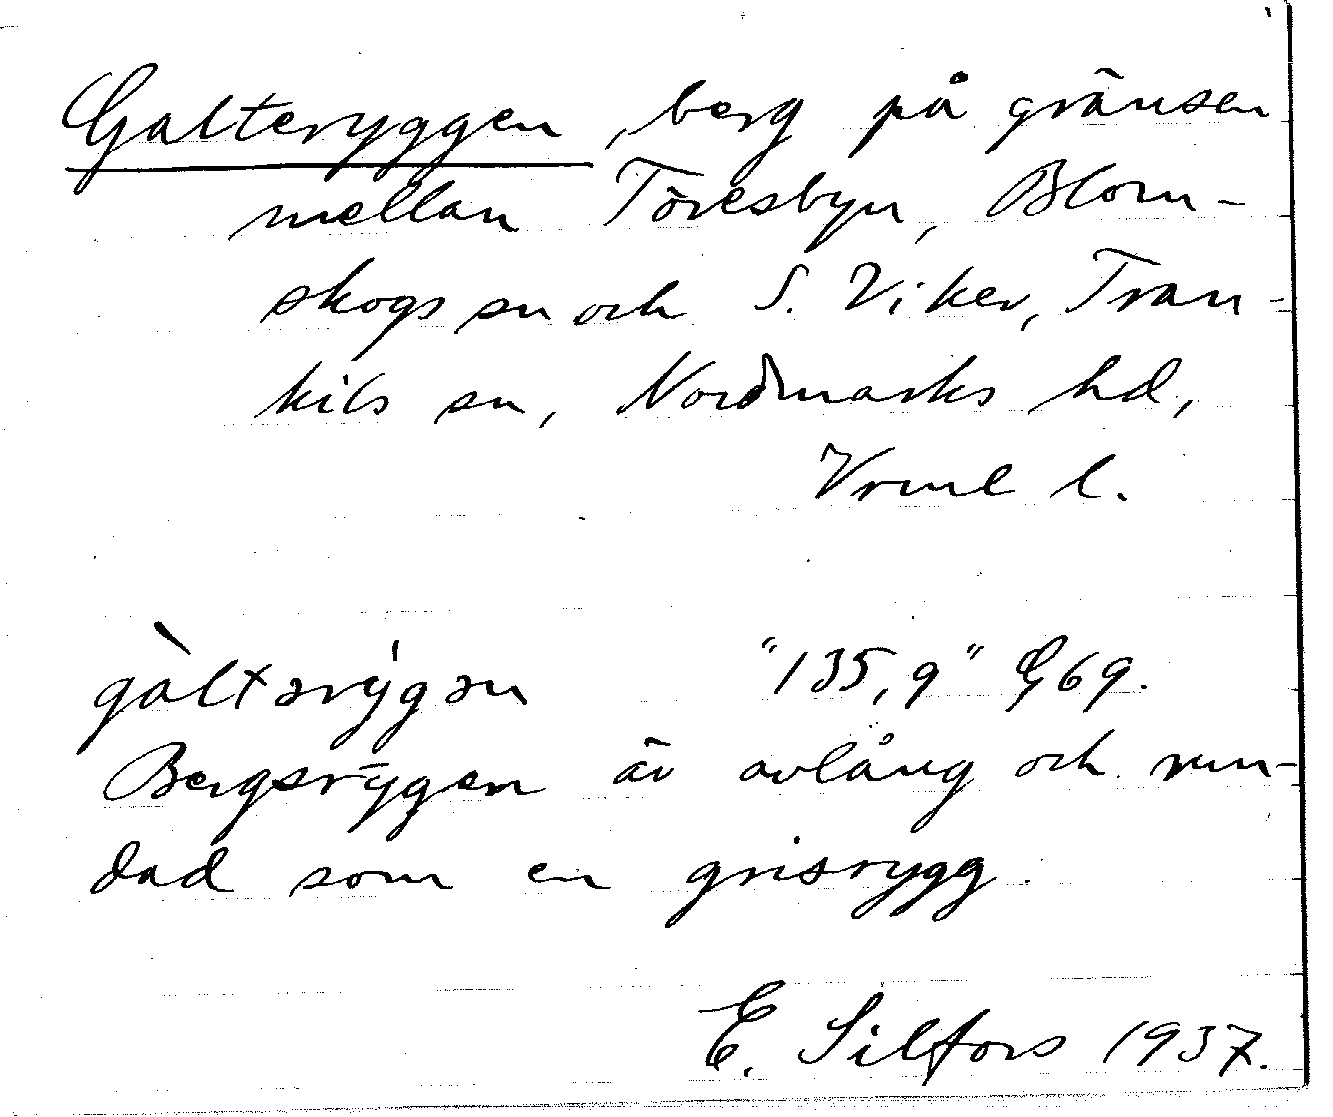 Galteryggen, berg på gränsen
mellan Töresbyn, Blom-
skogs sn och S. Viker, Tran-
kils sn, Nordmarks hd,
Vrml l.
gàltərýgən "135,9" G69.
Bergsrygen är avlång och run-
dad som en grisrygg.
E. Silfors 1937.